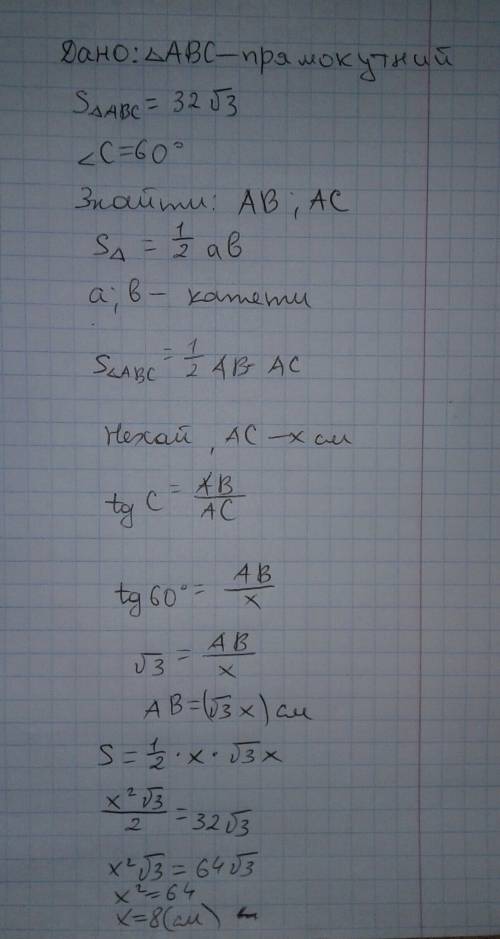 Дано: △ABC – прямокутний
S△ABC = 32√3
∠C=60°
Знайти: AB ; AC
S△ = 1/2 ав
а; в – катети
S△ABC = 1/2 AB· AC
Нехай , AC – x см
tg C = AB/AC
tg 60° = AB/x
√3 = AB/x
AB=(√3x) см
S = 1/2 · x · √3x
x²√3/2 = 32√3
x²√3 = 64√3
x²=64
x=8(см)